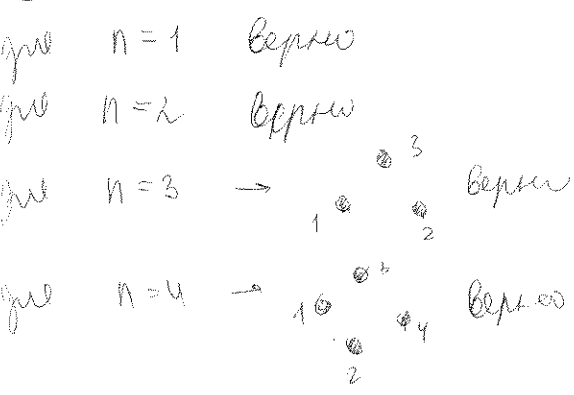 для n = 1 верно
для n = 2 верно
для n = 3 → 1 3 2 верно
для n = 4 → 1 3 4 2 верно